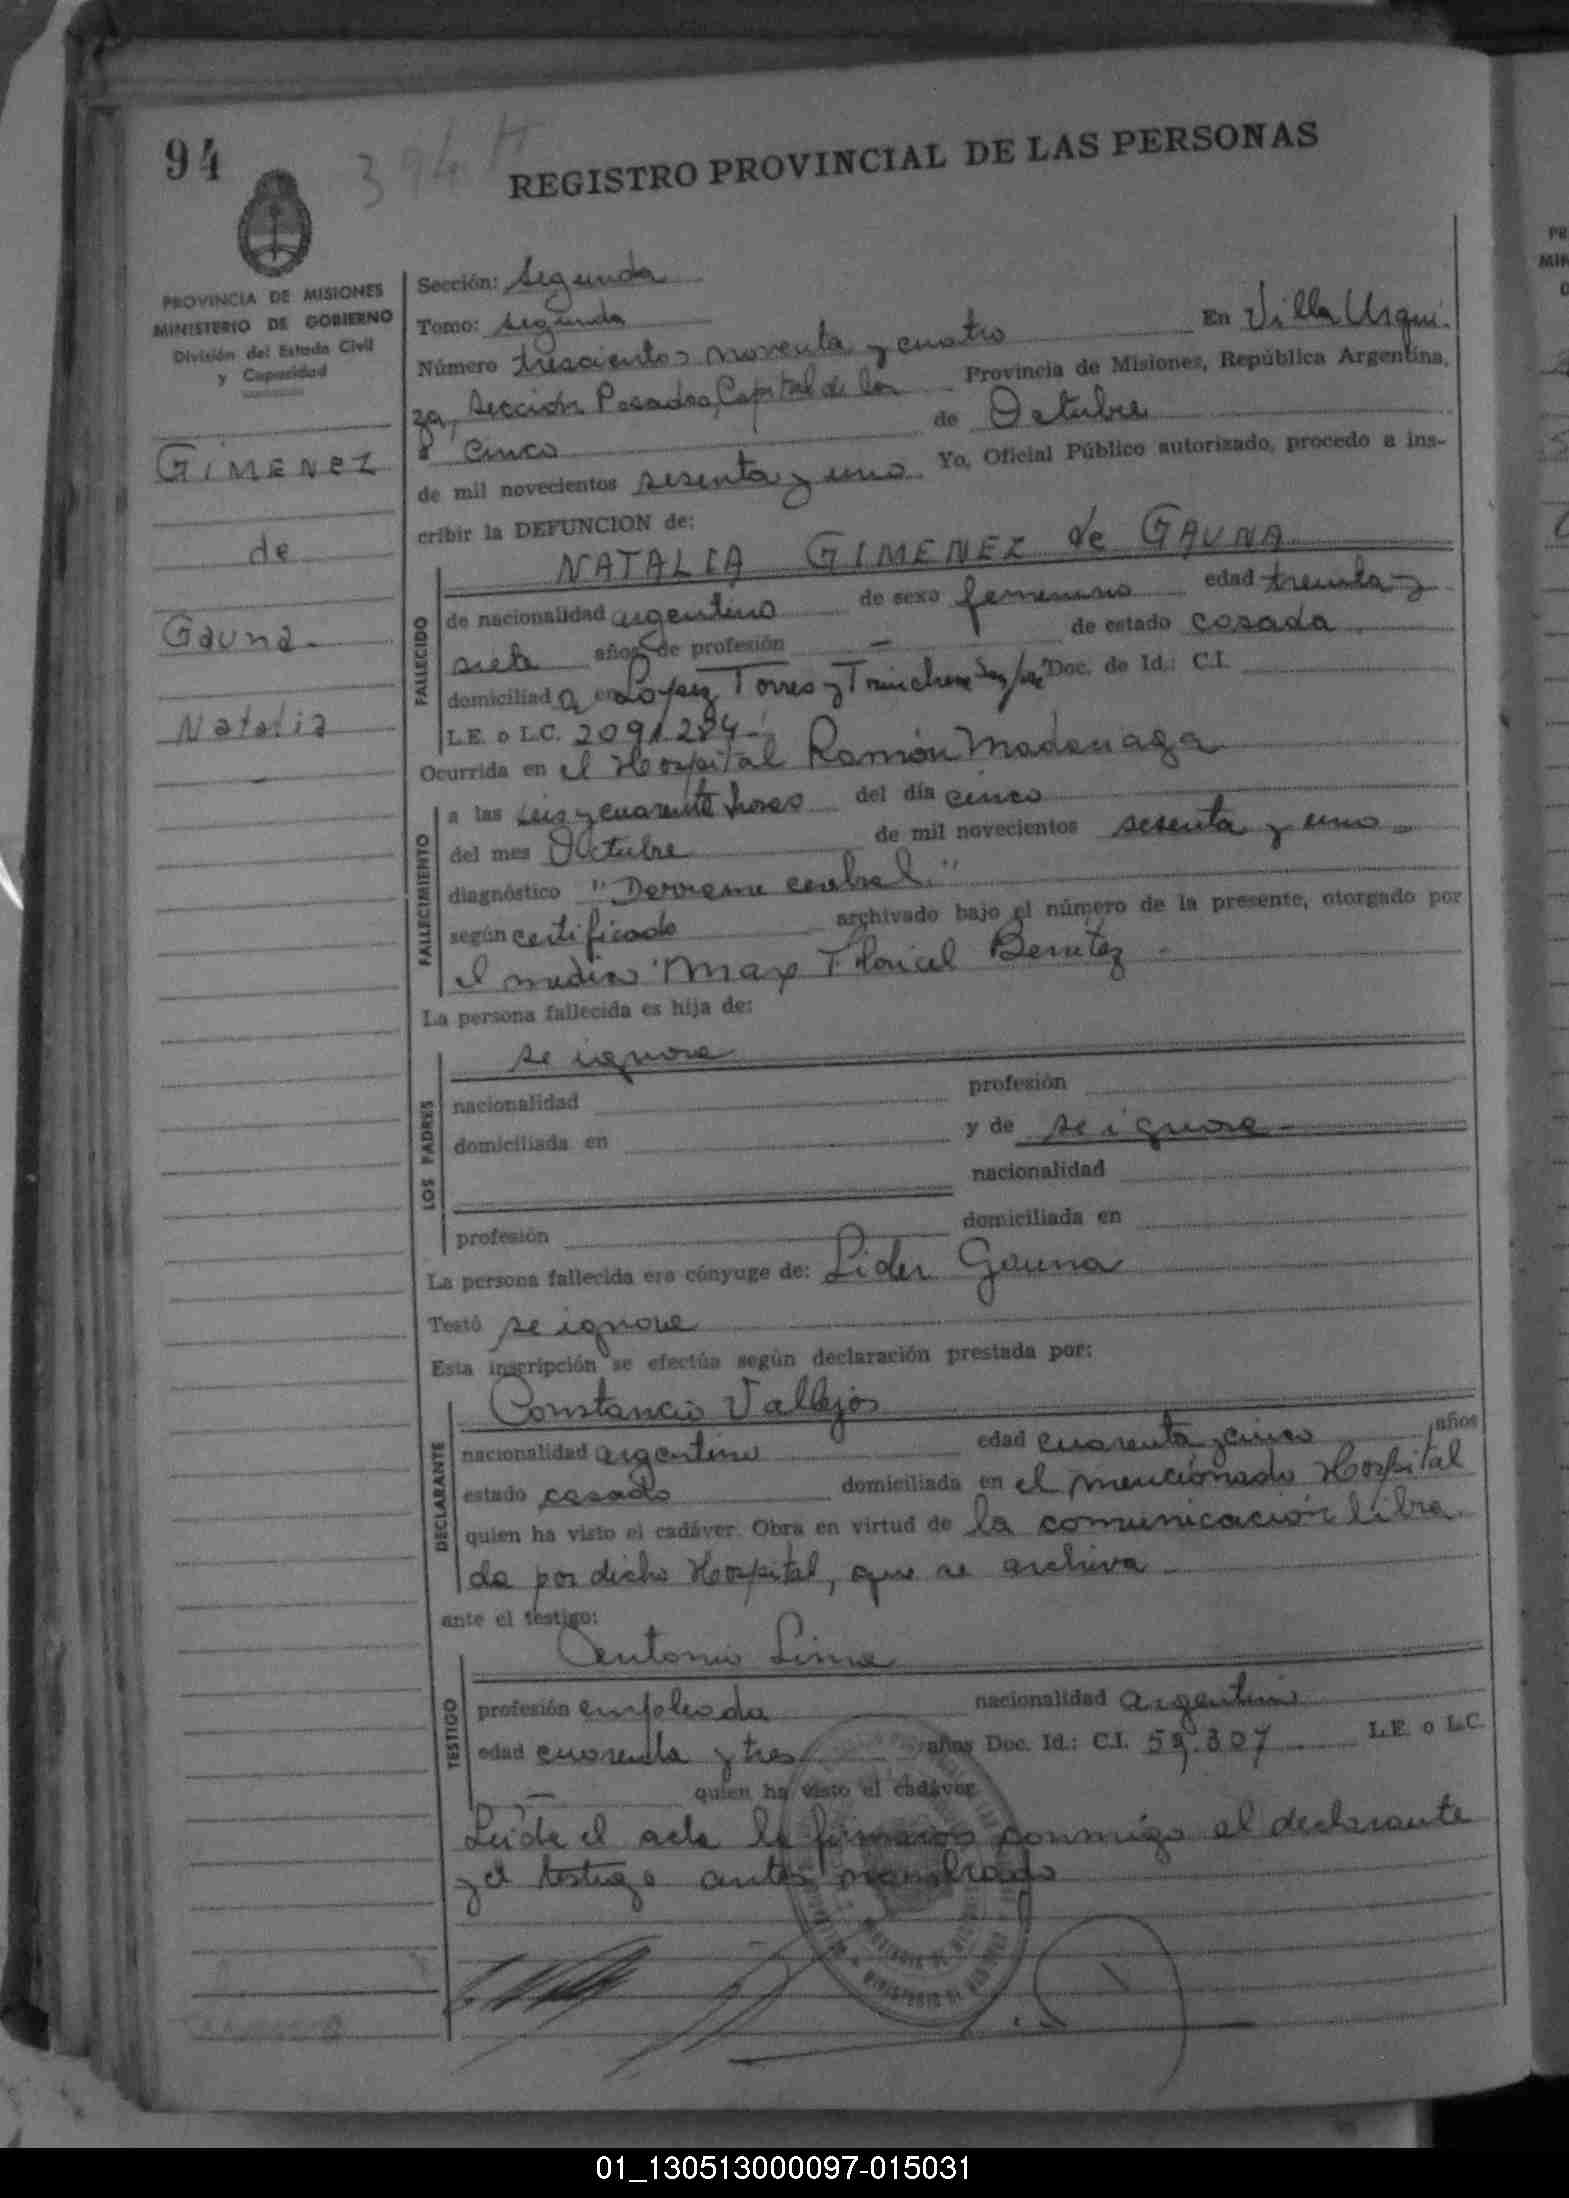 94
394 A
REGISTRO PROVINCIAL DE LAS PERSONAS
PROVINCIA DE MISIONES
MINISTERIO DE GOBIERNO
División del Estado Civil
y Capacidad
GIMENEZ
de
Gauna.
Natalia
Sección: Segunda
Tomo: segunda
Número trescientos noventa y cuatro En Villa Urqui-
za, Sección Posadas, Capital de la Provincia de Misiones, República Argentina,
a cinco de Octubre
de mil novecientos sesenta y uno Yo, Oficial Público autorizado, procedo a ins-
cribir la DEFUNCION de:
NATALIA GIMENEZ de GAUNA
FALLECIDO
de nacionalidad argentina de sexo femenino edad treinta y
siete años de profesión — de estado casada
domiciliada en López Torres y Trincheras Doc. de Id.: C.I.
L.E. o L.C. 2091.284-
Ocurrida en el Hospital Ramón Madariaga
FALLECIMIENTO
a las seis y cuarenta horas del día cinco
del mes Octubre de mil novecientos sesenta y uno
diagnóstico "Derrame cerebral"
según certificado archivado bajo el número de la presente, otorgado por
el medico Max Benitez -
La persona fallecida es hija de:
LOS PADRES
se ignora
nacionalidad profesión
domiciliada en y de se ignora -
nacionalidad
profesión domiciliada en
La persona fallecida era cónyuge de: Lider Gauna
Testó se ignora
Esta inscripción se efectúa según declaración prestada por:
DECLARANTE
Constancio Vallejos
nacionalidad argentino edad cuarenta y cinco años
estado casado domiciliada en el mencionado Hospital
quien ha visto el cadáver. Obra en virtud de la comunicación libra
da por dicho Hospital, que se archiva
ante el testigo:
TESTIGO
Antonio Lima
profesión empleado nacionalidad argentino
edad cuarenta y tres años Doc. Id.: C.I. 59.307 L.E. o L.C.
— quien ha visto el cadáver
Leida el acta la firmaron conmigo el declarante
y el testigo antes nombrado
01_130513000097-015031